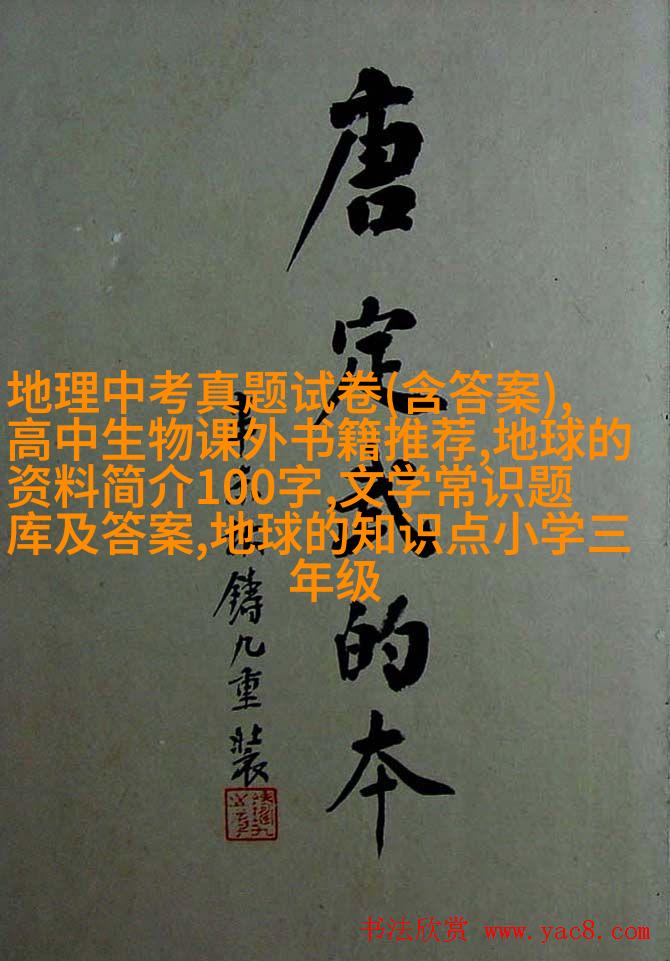 唐定武的本
铸九重装
地理中考真题试卷(含答案),
高中生物课外书籍推荐,地球的
资料简介100字,文学常识题
库及答案,地球的知识点小学三
年级
书法欣赏 www.yac8.com